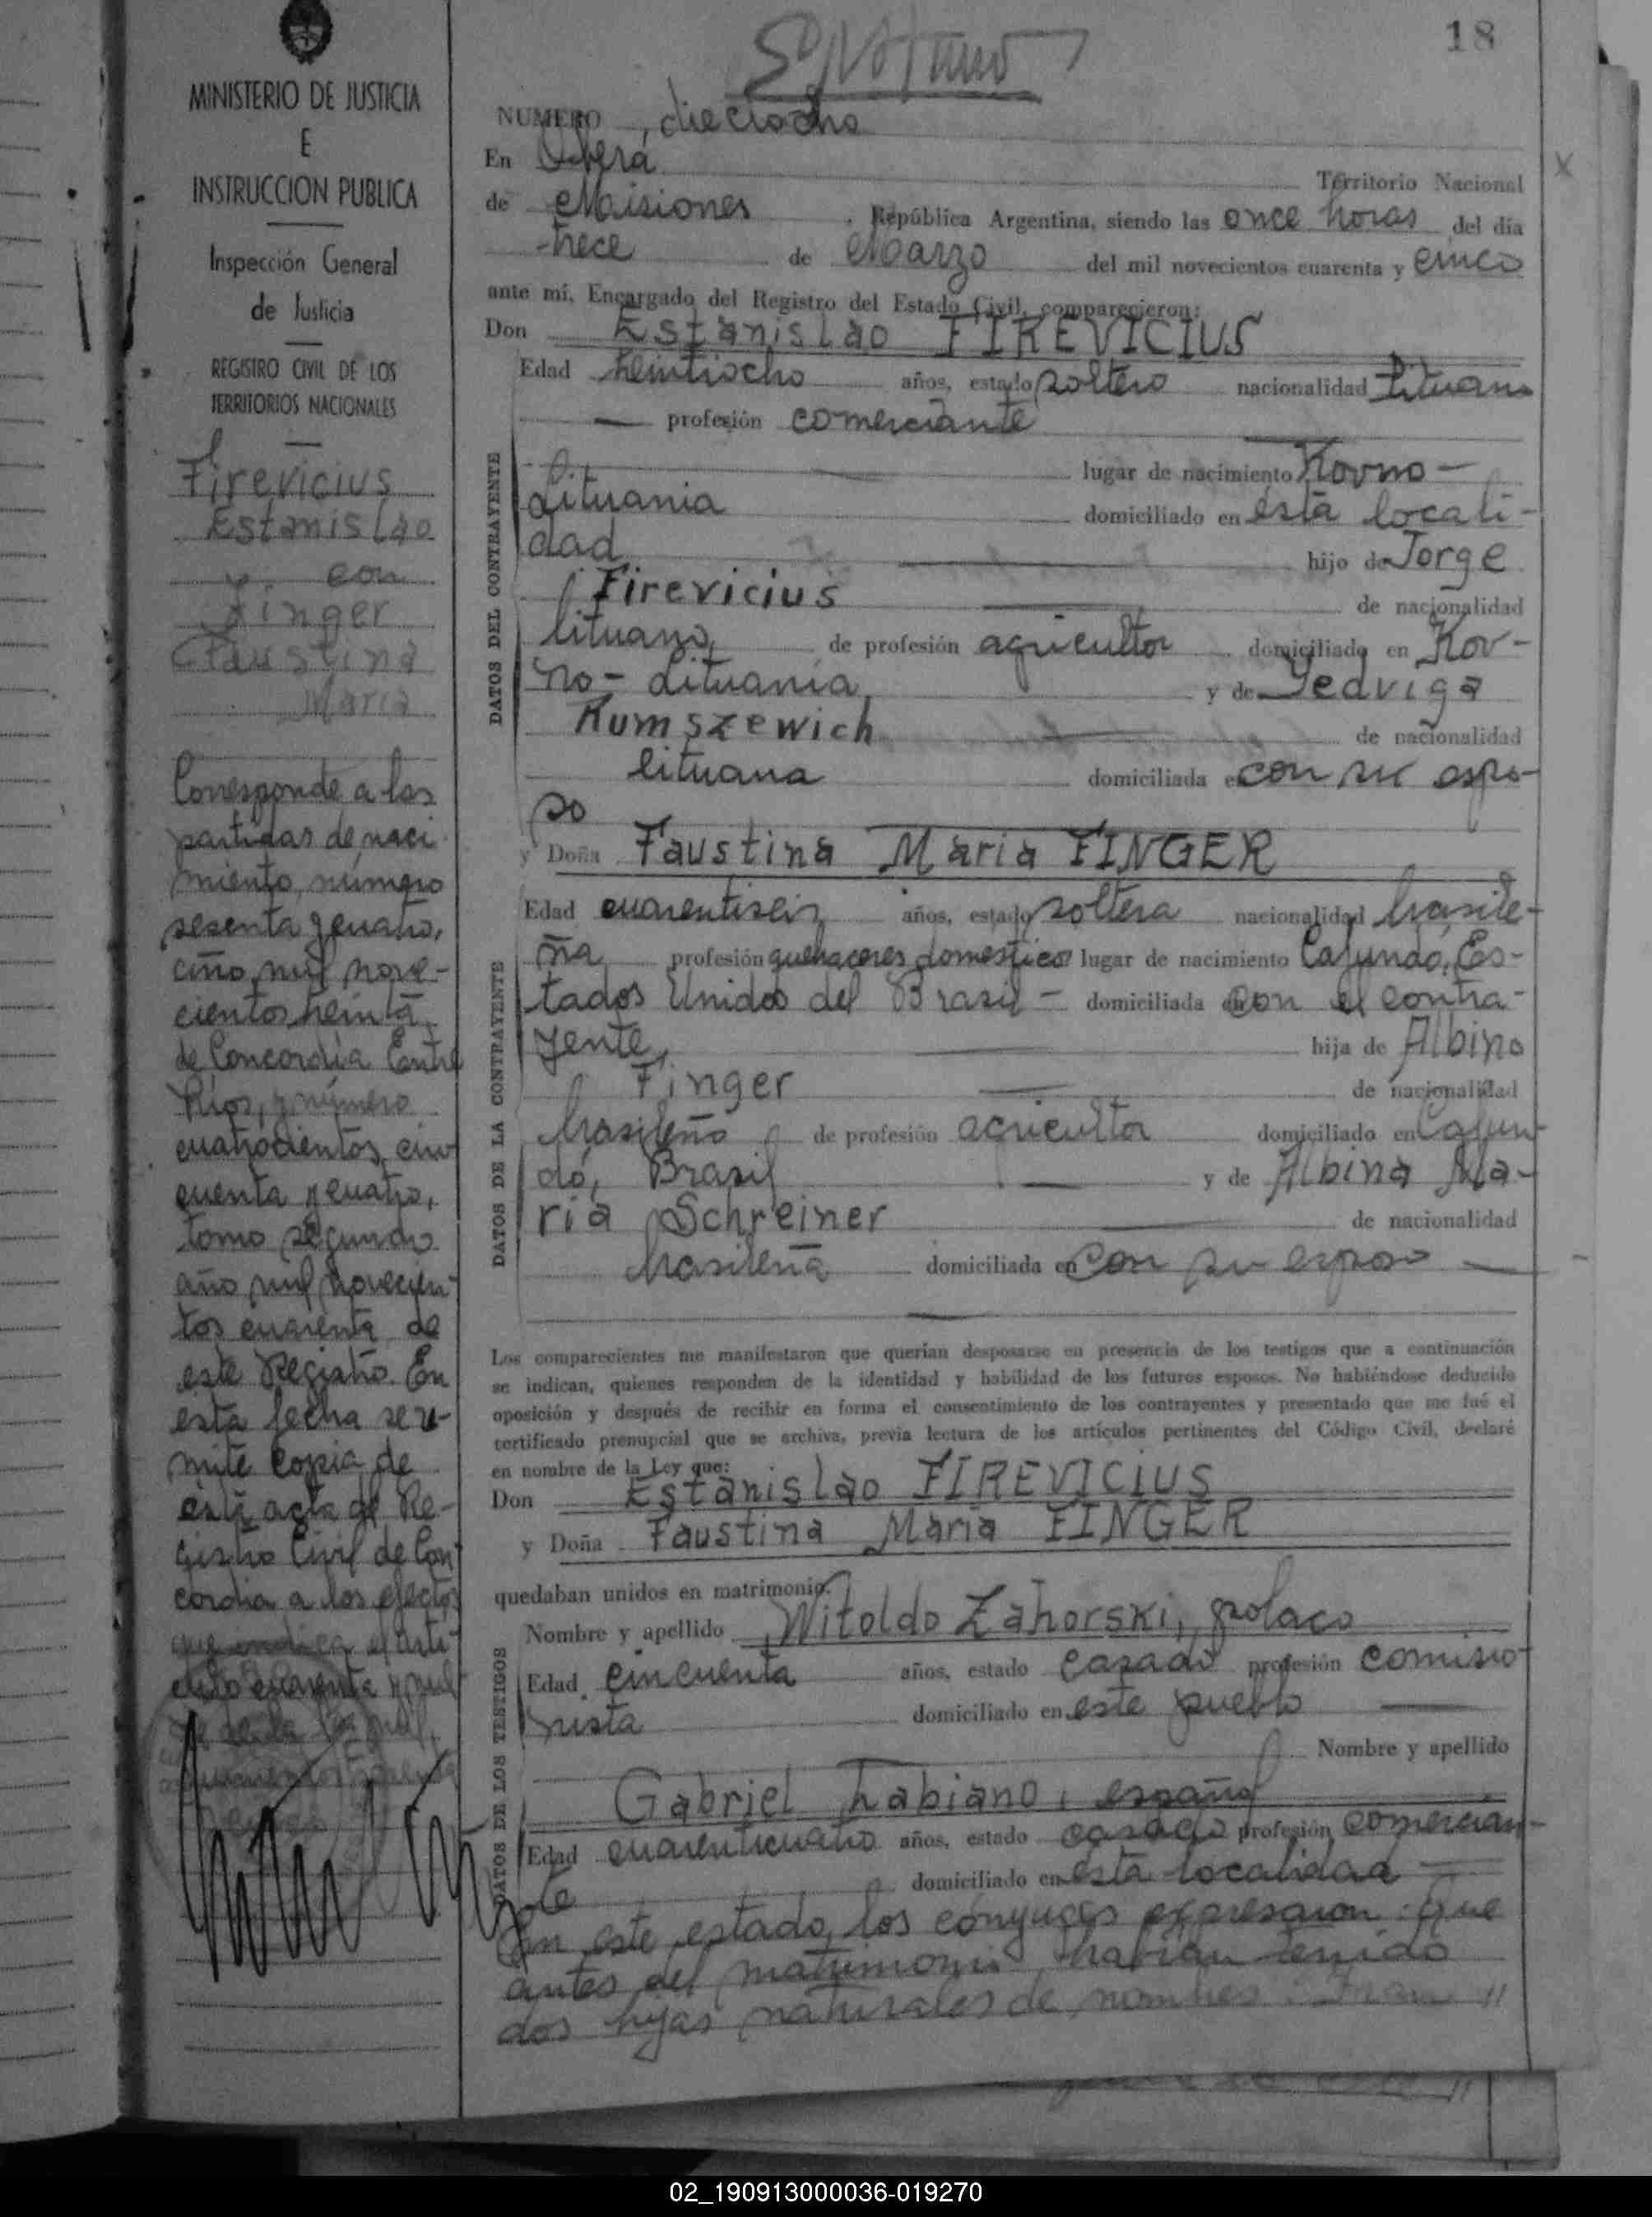 18
MINISTERIO DE JUSTICIA
E
INSTRUCCION PUBLICA
Inspección General
de Justicia
REGISTRO CIVIL DE LOS
TERRITORIOS NACIONALES
Firevicius
Estanislao
y con
Finger
Faustina
Maria
Corresponde a las
partidas de naci
miento, número
sesenta y cuatro,
año mil nove-
cientos treinta
de Concordia Entre
Ríos, y número
cuatrocientos cin
cuenta y cuatro,
tomo segundo
año mil novecien-
tos cuarenta de
este Registro. En
esta fecha se re-
mite copia de
esta acta al Re-
gistro Civil de Con
cordia a los efectos
que indica el artí
culo cuarenta y nue
ve de la ley mil
NUMERO dieciocho
En Oberá Territorio Nacional
de Misiones República Argentina, siendo las once horas del día
trece de Marzo del mil novecientos cuarenta y cinco
ante mí, Encargado del Registro del Estado Civil, comparecieron:
Don Estanislao FIREVICIUS
Edad treintiocho años, estado soltero nacionalidad lituana
profesión comerciante
lugar de nacimiento Kovno -
Lituania domiciliado en esta locali-
dad hijo de Jorge
Firevicius de nacionalidad
lituano, de profesión agricultor domiciliado en Kov-
no - Lituania, y de Yedviga
Rumszewich de nacionalidad
lituana domiciliada en con su espo-
so
y Doña Faustina Maria FINGER
Edad cuarentiseis años, estado soltera nacionalidad brasile-
ña profesión quehaceres domestico lugar de nacimiento Cajundó, Es-
tados Unidos del Brasil - domiciliada en con el contra-
yente, hija de Albino
Finger de nacionalidad
brasileño de profesión agricultor domiciliado en Cajun-
dó, Brasil y de Albina Ma-
ria Schreiner de nacionalidad
brasileña domiciliada en con su esposo
Los comparecientes me manifestaron que querían desposarse en presencia de los testigos que a continuación
se indican, quienes responden de la identidad y habilidad de los futuros esposos. No habiéndose deducido
oposición y después de recibir en forma el consentimiento de los contrayentes y presentado que me fué el
certificado prenupcial que se archiva, previa lectura de los artículos pertinentes del Código Civil, declaré
en nombre de la Ley que:
Don Estanislao FIREVICIUS
y Doña Faustina Maria FINGER
quedaban unidos en matrimonio.
Nombre y apellido Witoldo Zahorski, polaco
Edad cincuenta años, estado casado profesión comisio-
nista domiciliado en este pueblo
Nombre y apellido
Gabriel Labiano, español
Edad cuarenticuatro años, estado casado profesión comercian-
te domiciliado en esta localidad
En este estado, los cónyuges expresaron: Que
antes del matrimonio habían tenido
dos hijas naturales de nombres: Fran //
DATOS DEL CONTRAYENTE
DATOS DE LA CONTRAYENTE
DATOS DE LOS TESTIGOS
02_190913000036-019270